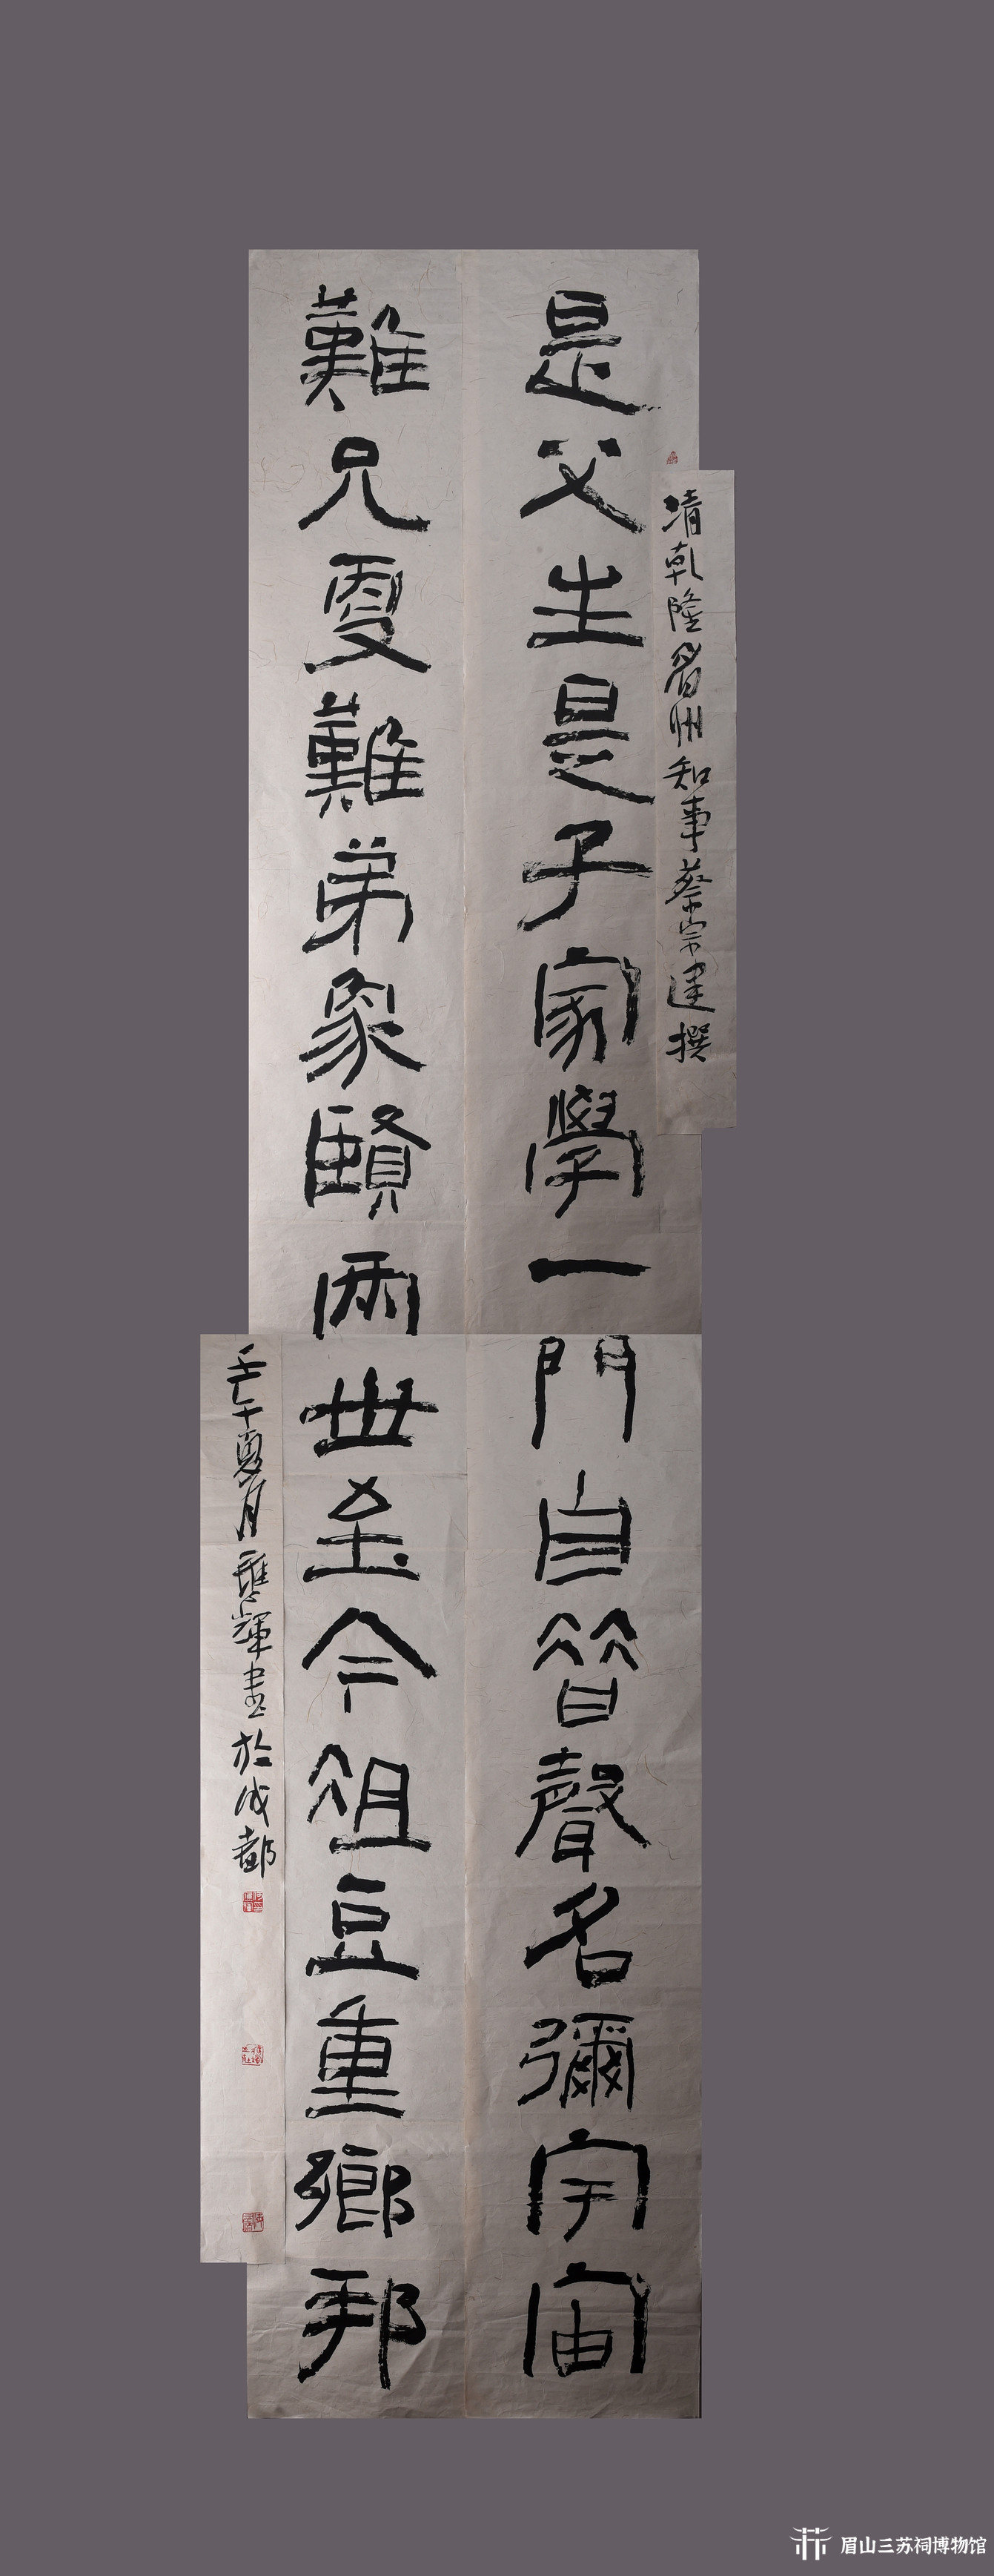 清乾隆眉州知事蔡宗建撰
是父生是子家學一門自昔聲名彌宇宙
難兄更難弟象賢兩世至今俎豆重鄉邦
壬午夏月應輝書於成都
眉山三苏祠博物馆